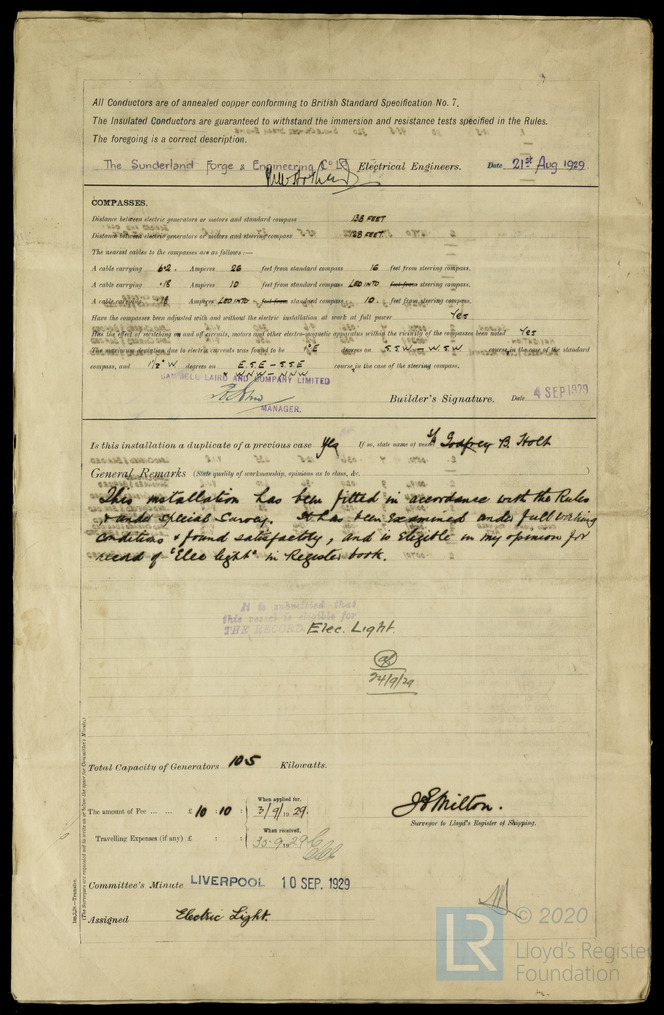 All Conductors are of annealed copper conforming to British Standard Specification No. 7.
The Insulated Conductors are guaranteed to withstand the immersion and resistance tests specified in the Rules.
The foregoing is a correct description.
The Sunderland Forge & Engineering Co Ld Electrical Engineers. Date 21st Aug 1929
COMPASSES.
Distance between electric generators or motors and standard compass 138 FEET
Distance between electric generators or motors and steering compass 128 FEET
The nearest cables to the compasses are as follows:—
A cable carrying 6.2. Ampères 26 feet from standard compass 16 feet from steering compass.
A cable carrying .18 Ampères 10 feet from standard compass LED INTO feet from steering compass.
A cable carrying .18 Ampères LED INTO feet from standard compass 10. feet from steering compass.
Have the compasses been adjusted with and without the electric installation at work at full power Yes
Has the effect of switching on and off circuits, motors and other electro-magnetic apparatus within the vicinity of the compasses been noted Yes
The maximum deviation due to electric currents was found to be ½°E degrees on S.S.W. – W.S.W course in the case of the standard
compass, and 1½° W degrees on E.S.E – S.S.E course in the case of the steering compass.
& W.N.W – N.N.W
CAMMELL LAIRD AND COMPANY LIMITED
MANAGER.
Builder's Signature. Date 4 SEP 1929
Is this installation a duplicate of a previous case Yes If so, state name of vessel Godfrey B. Holt
General Remarks (State quality of workmanship, opinions as to class, &c.
This installation has been fitted in accordance with the Rules
& under Special Survey. It has been examined under full working
conditions & found satisfactory, and is eligible in my opinion for
record of "Elec light" in Register book.
It is submitted that
this vessel is eligible for
THE RECORD Elec. Light.
24/9/29
Total Capacity of Generators 105 Kilowatts.
The amount of Fee ... ... £ 10 : 10 : When applied for, 3/9/1929.
Travelling Expenses (if any) £ : : When received, 30.9.1929
J S Milton.
Surveyor to Lloyd's Register of Shipping.
Committee's Minute LIVERPOOL 10 SEP. 1929
Assigned Electric Light.
(The Surveyors are requested not to write on or below the space for Committee's Minute.)
© 2020
LR
Lloyd's Register
Foundation